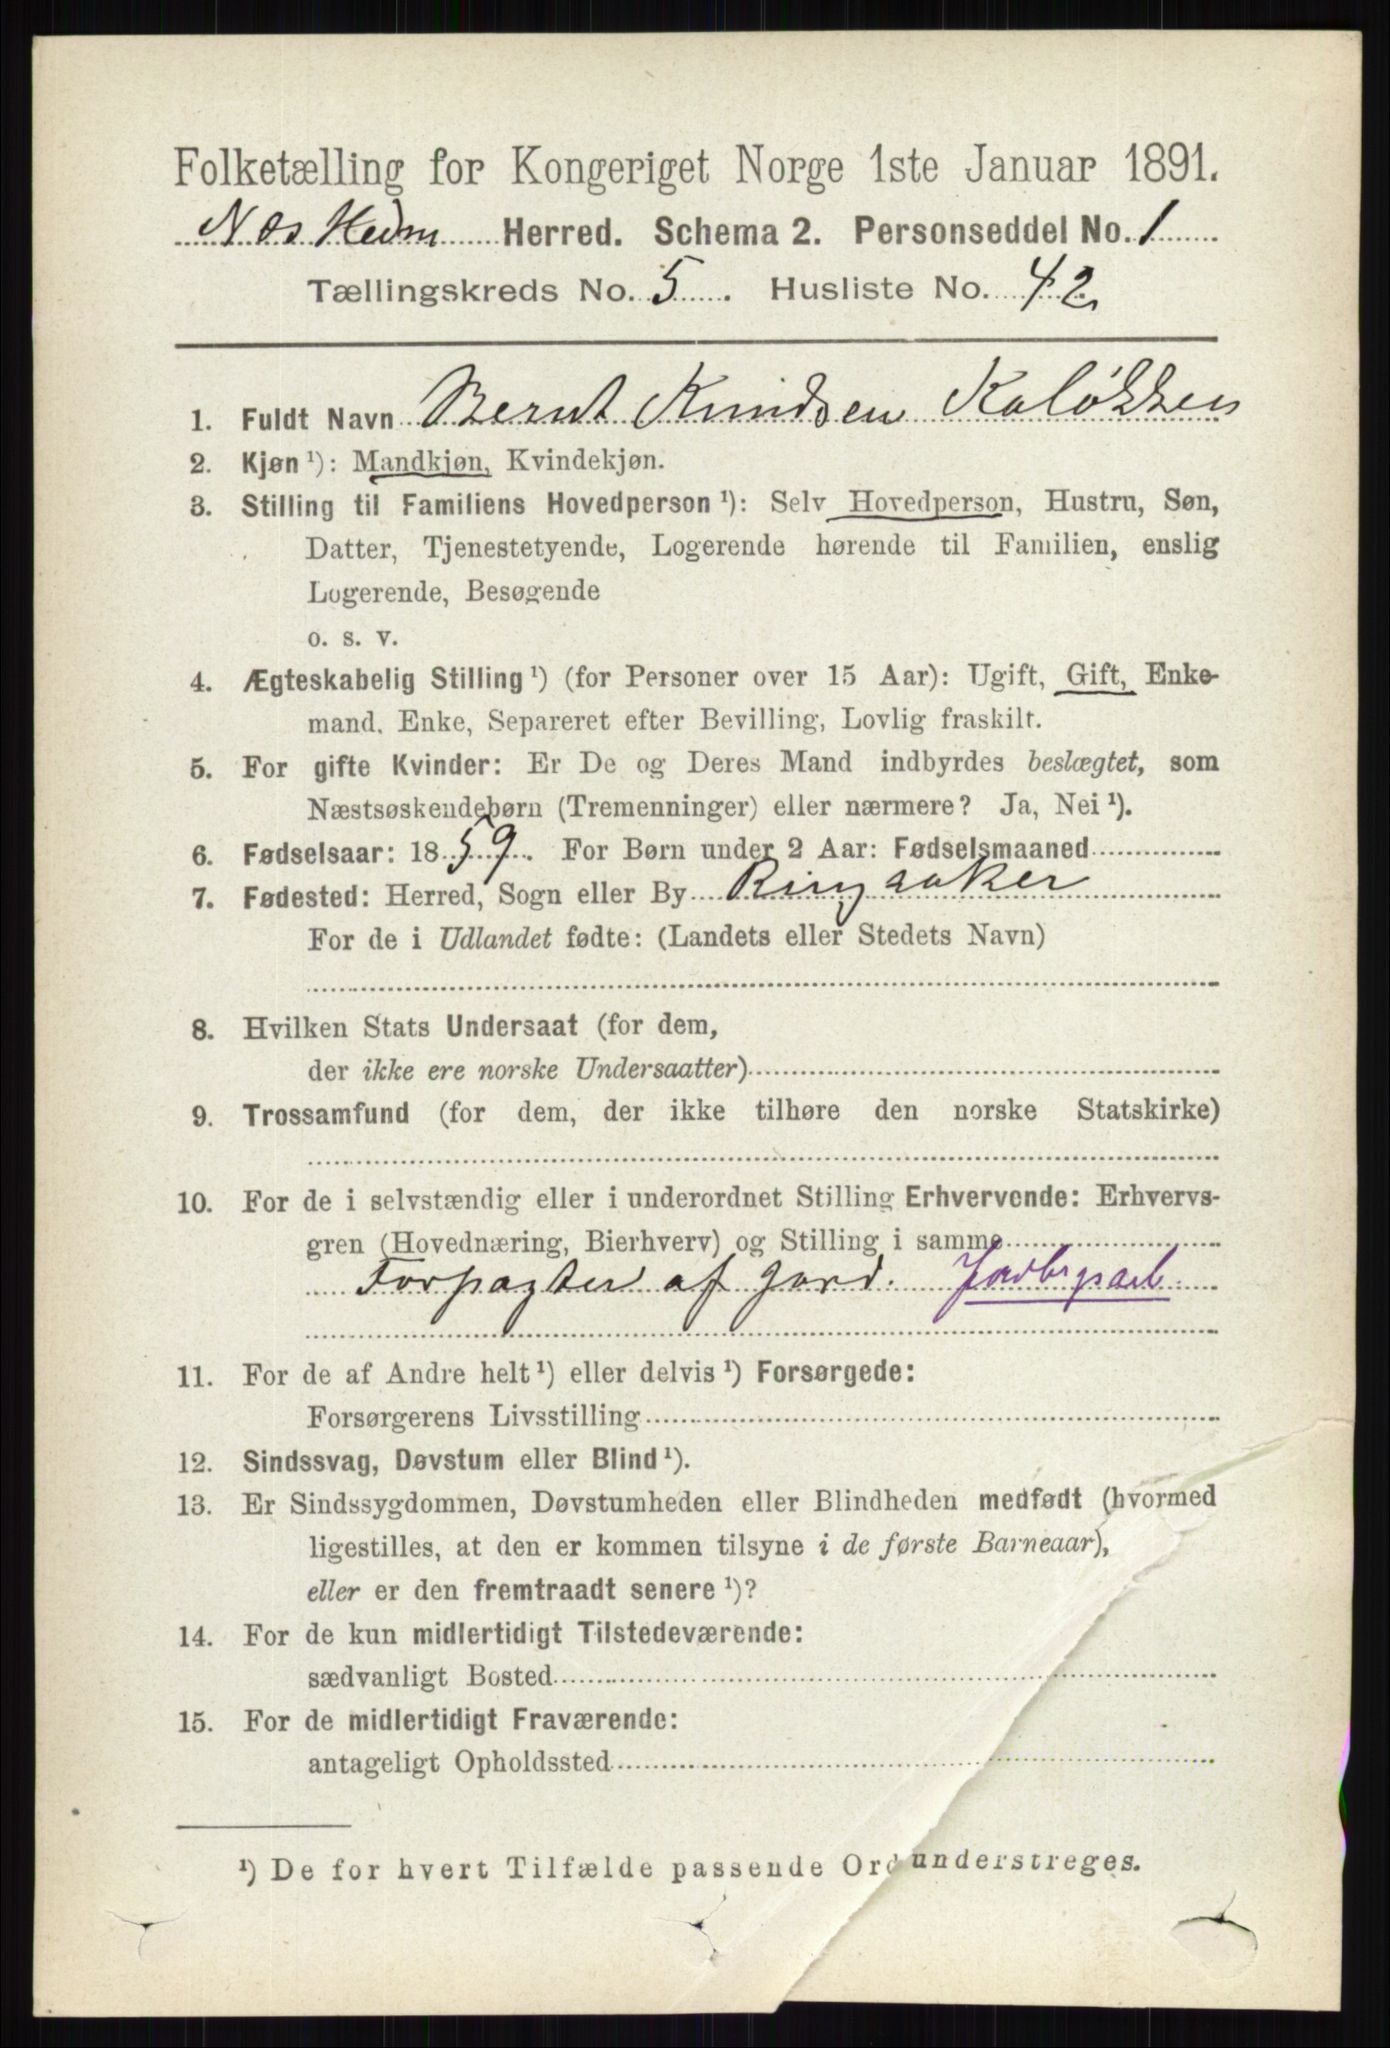 Folketælling for Kongeriget Norge 1ste Januar 1891.
Næs Hedm Herred. Schema 2. Personseddel No. 1
Tællingskreds No. 5. Husliste No. 42
1. Fuldt Navn Bernt Knudsen Kaløkken
2. Kjøn ¹): Mandkjøn, Kvindekjøn.
3. Stilling til Familiens Hovedperson ¹): Selv Hovedperson, Hustru, Søn,
Datter, Tjenestetyende, Logerende hørende til Familien, enslig
Logerende, Besøgende
o. s. v.
4. Ægteskabelig Stilling ¹) (for Personer over 15 Aar): Ugift, Gift, Enke-
mand, Enke, Separeret efter Bevilling, Lovlig fraskilt.
5. For gifte Kvinder: Er De og Deres Mand indbyrdes beslægtet, som
Næstsøskendebørn (Tremenninger) eller nærmere? Ja, Nei ¹).
6. Fødselsaar: 1859. For Børn under 2 Aar: Fødselsmaaned
7. Fødested: Herred, Sogn eller By Ringsaker
For de i Udlandet fødte: (Landets eller Stedets Navn)
8. Hvilken Stats Undersaat (for dem,
der ikke ere norske Undersaatter)
9. Trossamfund (for dem, der ikke tilhøre den norske Statskirke)
10. For de i selvstændig eller i underordnet Stilling Erhvervende: Erhvervs-
gren (Hovednæring, Bierhverv) og Stilling i samme
Forpagter af gard.
11. For de af Andre helt ¹) eller delvis ¹) Forsørgede:
Forsørgerens Livsstilling
12. Sindssvag, Døvstum eller Blind ¹).
13. Er Sindssygdommen, Døvstumheden eller Blindheden medfødt (hvormed
ligestilles, at den er kommen tilsyne i de første Barneaar),
eller er den fremtraadt senere ¹)?
14. For de kun midlertidigt Tilstedeværende:
sædvanligt Bosted
15. For de midlertidigt Fraværende:
antageligt Opholdssted
¹) De for hvert Tilfælde passende Ord understreges.